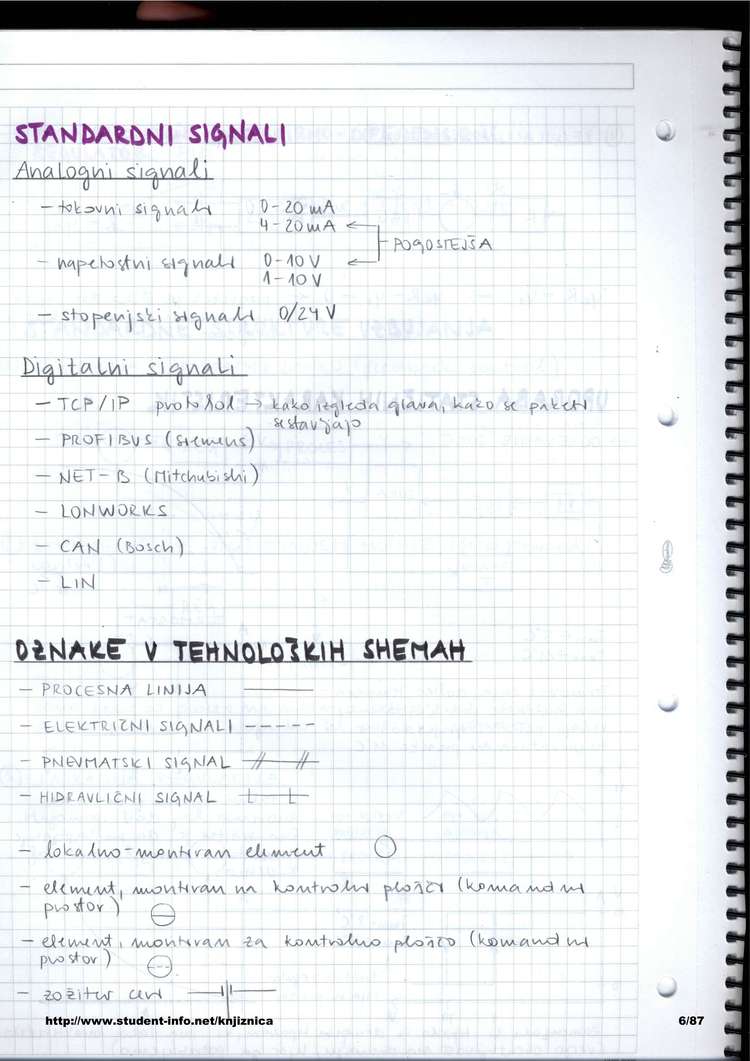 STANDARDNI SIGNALI
Analogni signali
- tokovni signali 0-20 mA
4-20 mA
POGOSTEJŠA
- napetostni signali 0-10 V
1-10 V
- stopenjski signali 0/24 V
Digitalni signali
- TCP/IP protokol → kako izgleda glava, kako se paketi
sestavljajo
- PROFIBUS (Siemens)
- NET-B (Mitchubishi)
- LONWORKS
- CAN (Bosch)
- LIN
OZNAKE V TEHNOLOŠKIH SHEMAH
- PROCESNA LINIJA
- ELEKTRIČNI SIGNALI
- PNEVMATSKI SIGNAL
- HIDRAVLIČNI SIGNAL
- lokalno-montiran element
- element, montiran na kontrolni plošči (komandni
prostor)
- element, montiran za kontrolno ploščo (komandni
prostor)
- zožitev cevi
http://www.student-info.net/knjiznica 6/87